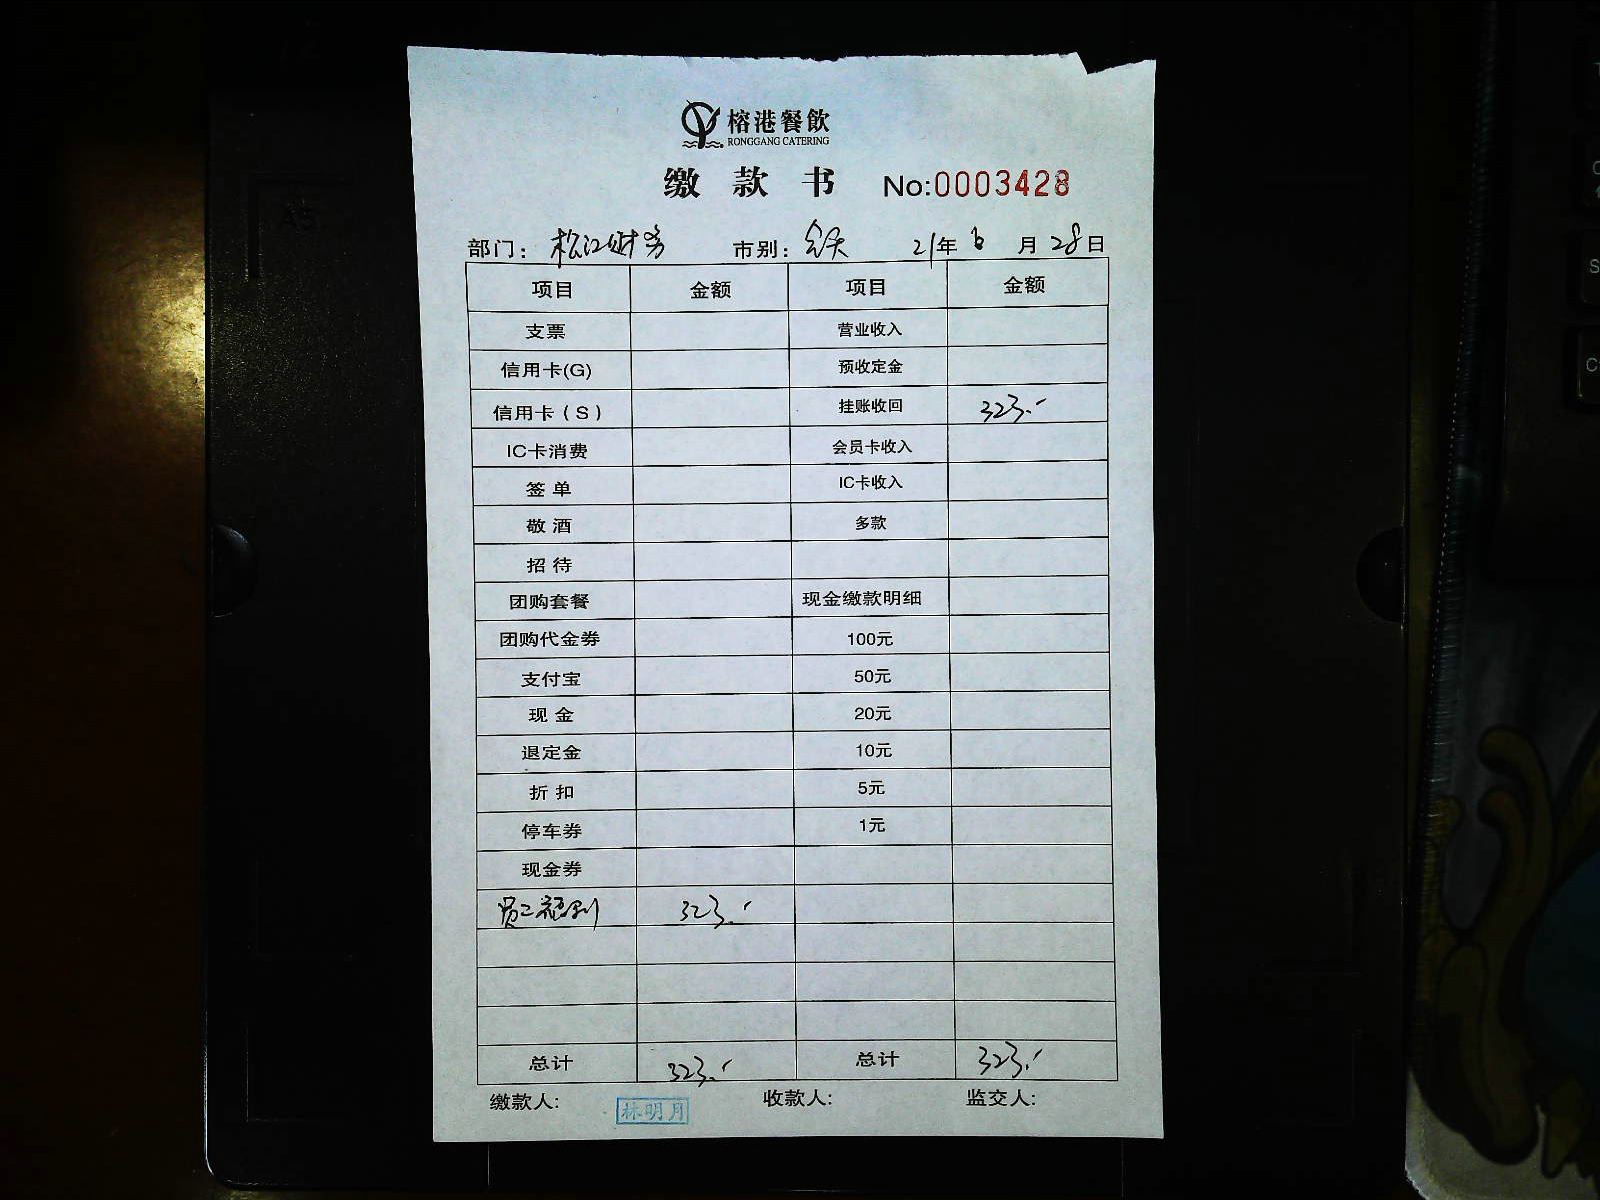 榕港餐飲
RONGGANG CATERING
缴款书 No:0003428
部门: 松江财务 市别: 全天 21年6月28日
项目 金额 项目 金额
支票 营业收入
信用卡(G) 预收定金
信用卡(S) 挂账收回 323.-
IC卡消费 会员卡收入
签单 IC卡收入
敬酒 多款
招待
团购套餐 现金缴款明细
团购代金券 100元
支付宝 50元
现金 20元
退定金 10元
折扣 5元
停车券 1元
现金券
员工福利 323.-
总计 323.- 总计 323.-
缴款人: 林明月 收款人: 监交人: